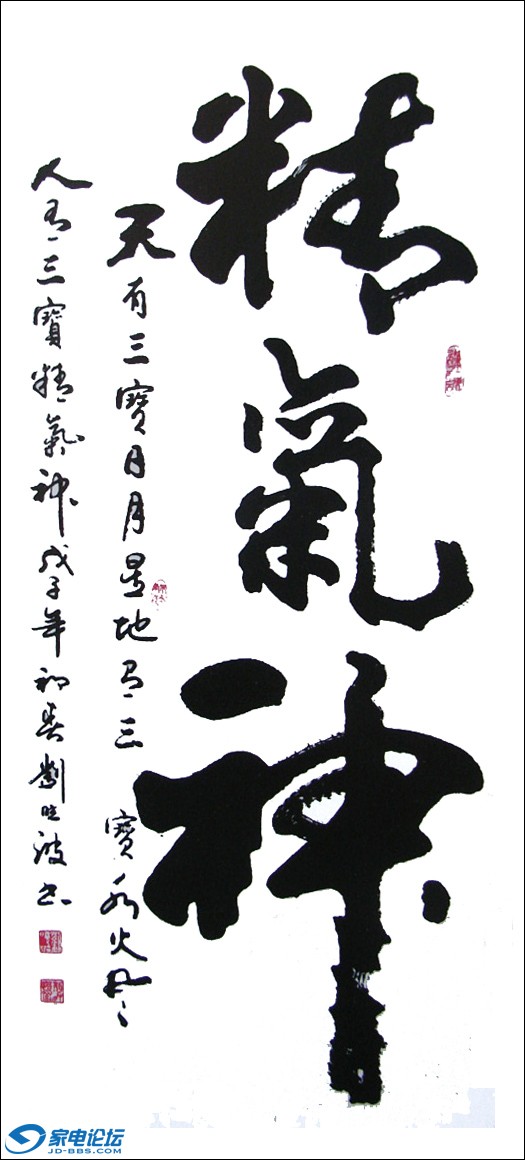 精氣神
天有三寶日月星地有三寶水火風
人有三寶精氣神戊子年初春劉旺波书
家电论坛
JD-BBS.COM